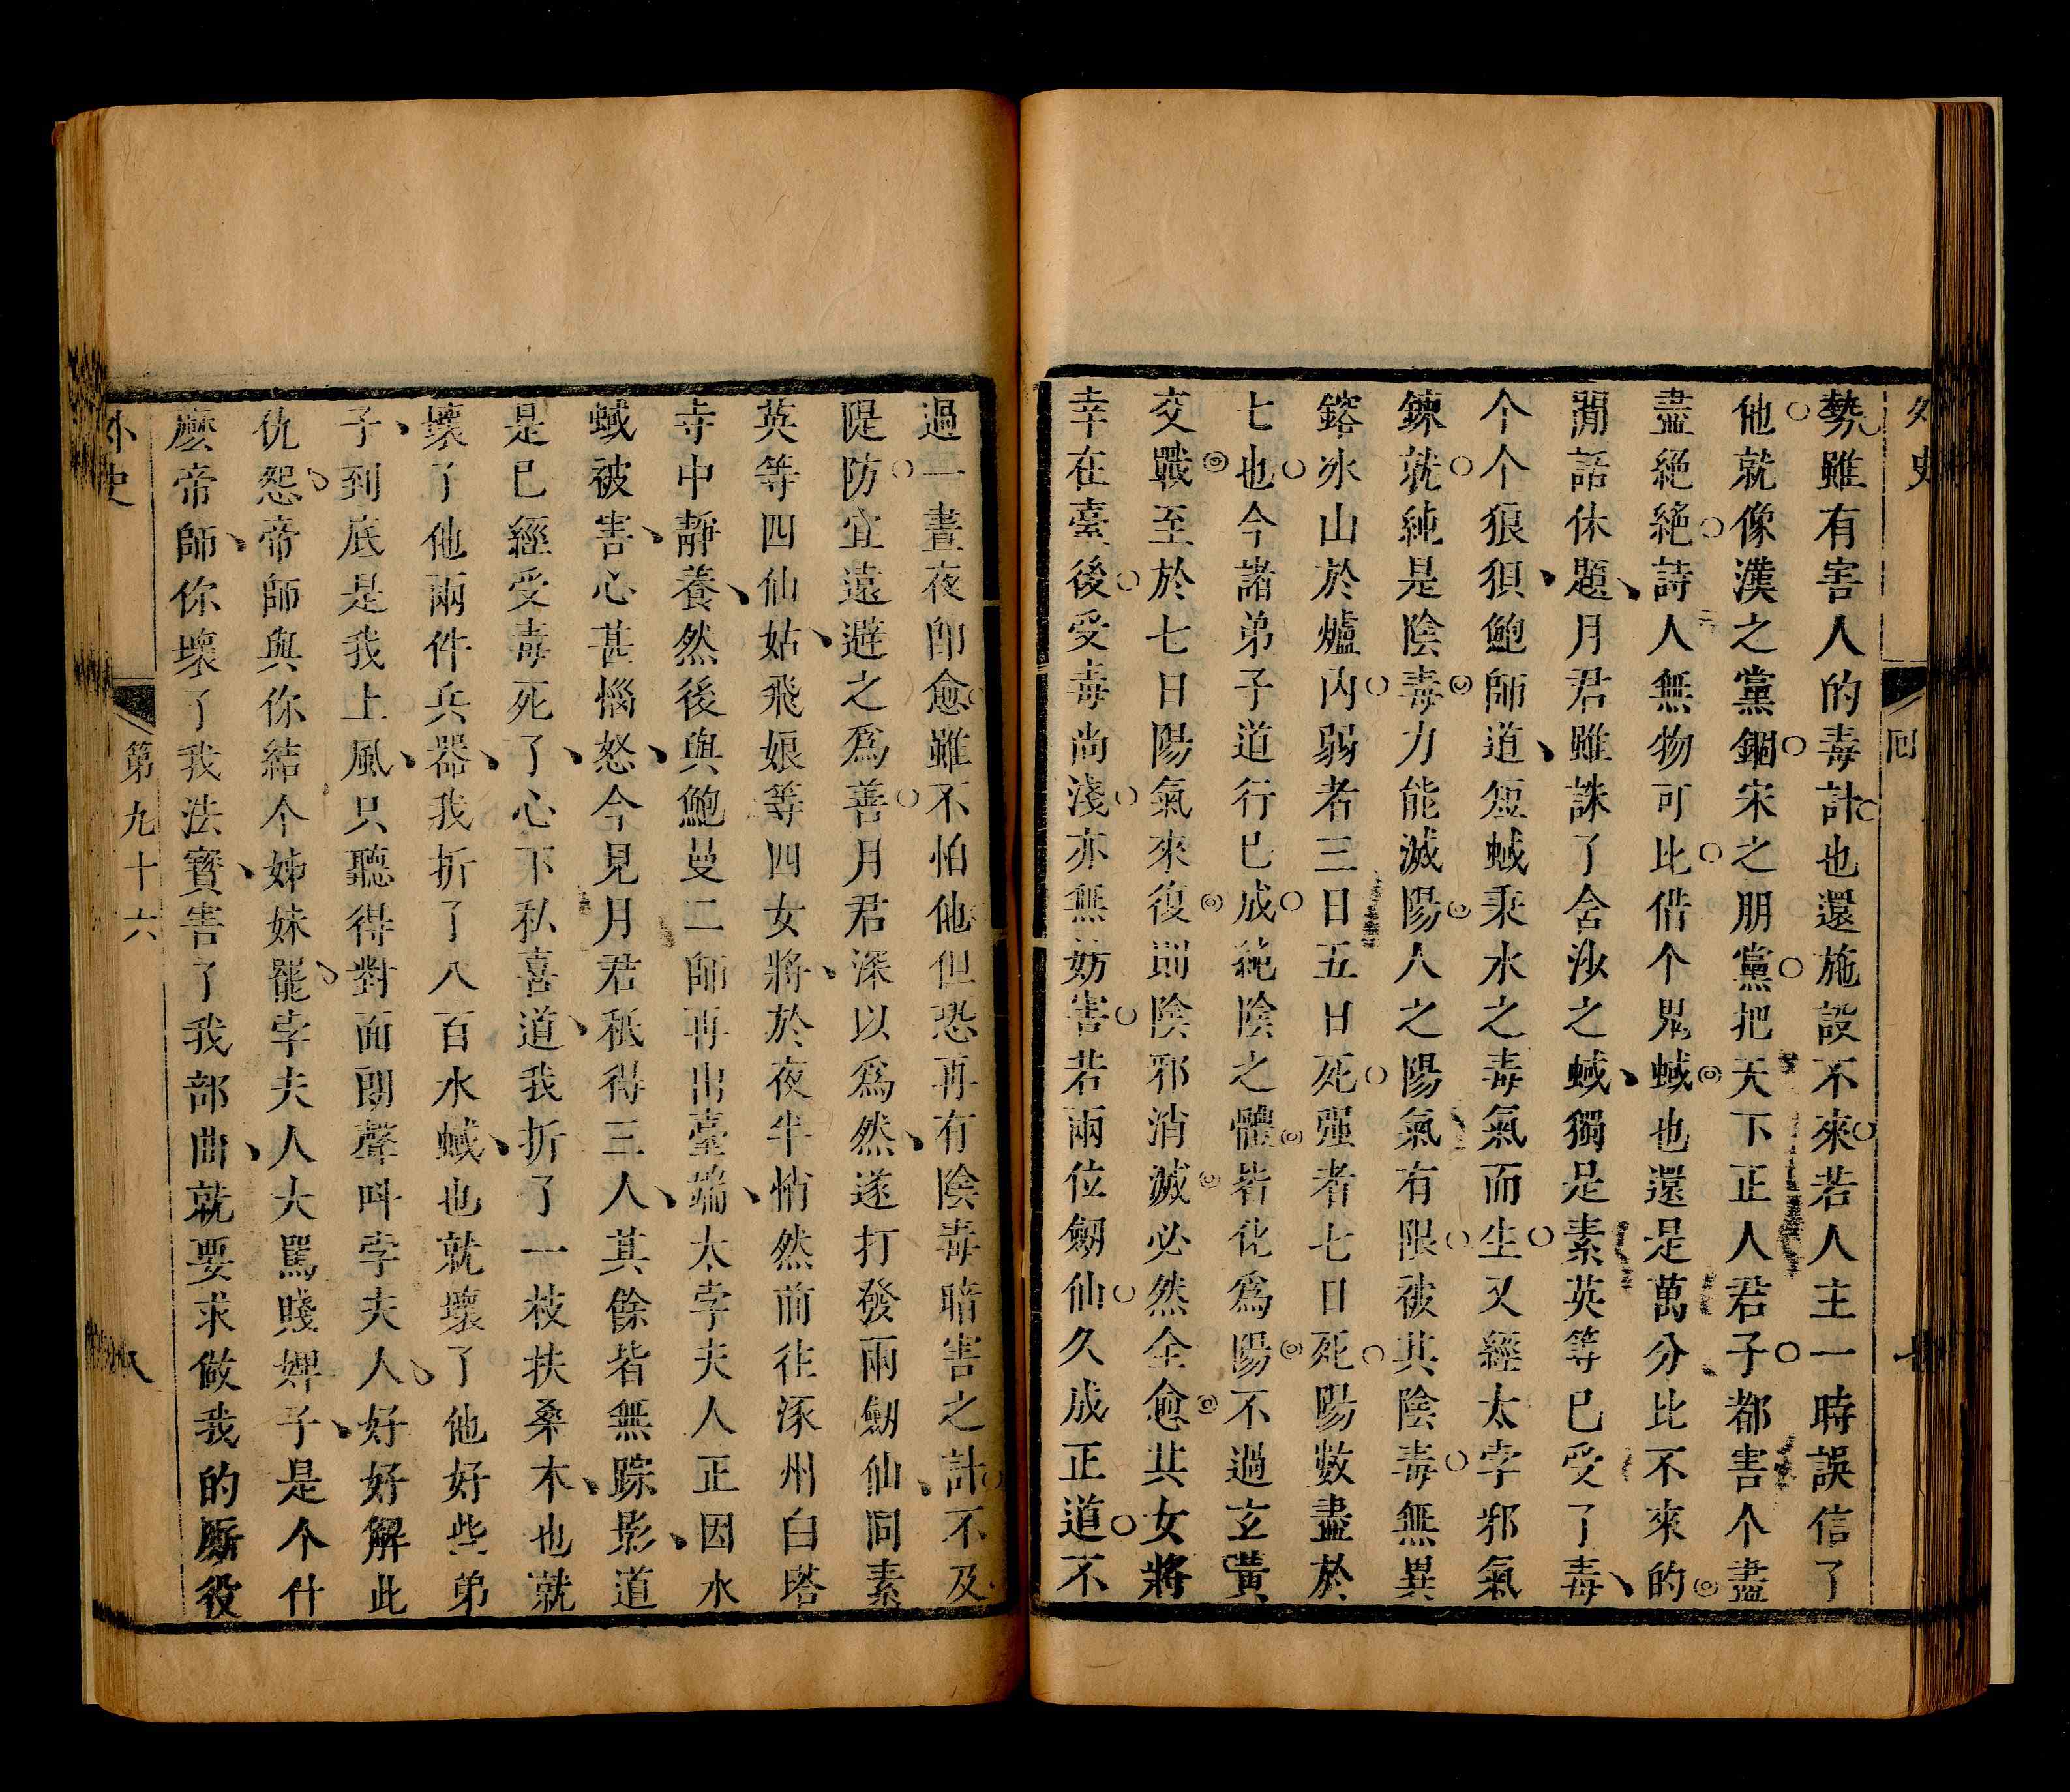 外史
回
七
勢雖有害人的毒計也還施設不來若人主一時誤信了
他就像漢之黨錮宋之朋黨把天下正人君子都害个盡
盡絕絕詩人無物可比借个鬼蜮也還是萬分比不來的
閒話休題月君雖誅了含沙之蜮獨是素英等已受了毒
个个狼狽鮑師道短蜮秉水之毒氣而生又經太孛邪氣
鍊就純是陰毒力能滅陽人之陽氣有限被其陰毒無異
鎔冰山於爐內弱者三日五日死强者七日死陽數盡於
七也今諸弟子道行已成純陰之體皆化爲陽不過玄黃
交戰至於七日陽氣來復則陰邪消滅必然全愈其女將
幸在臺後受毒尚淺亦無妨害若兩位劔仙久成正道不
過一晝夜卽愈雖不怕他但恐再有陰毒暗害之計不及
隄防宜遠避之爲善月君深以爲然遂打發兩劔仙同素
英等四仙姑飛娘等四女將於夜半悄然前往涿州白塔
寺中靜養然後與鮑曼二師再出臺端太孛夫人正因水
蜮被害心甚惱怒今見月君秪得三人其餘皆無踪影道
是已經受毒死了心下私喜道我折了一枝扶桑木也就
壞了他兩件兵器我折了八百水蜮也就壞了他好些弟
子到底是我上風只聽得對面朗聲呌孛夫人好好解此
仇怨帝師與你結个姊妹罷孛夫人大罵賤婢子是个什
麽帝師你壞了我法寶害了我部曲就要求做我的厮役
外史
第九十六
八